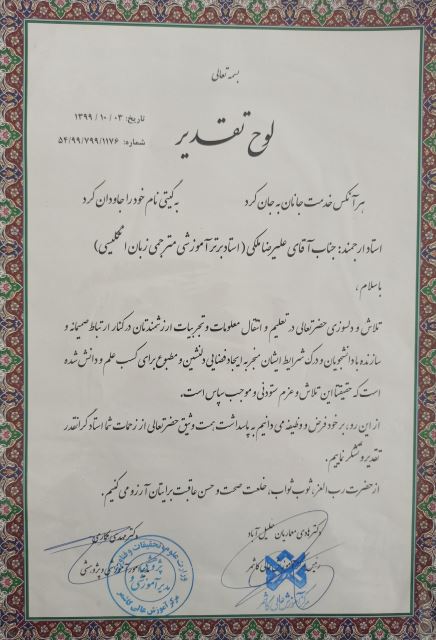 بسمه تعالی
تاریخ: ۰۳ / ۱۰ / ۱۳۹۹
لوح تقدیر
شماره: ۵۴/۹۹/۷۹۹/۱۱۷۶
هر آنکس خدمت جانان به جان کرد به گیتی نام خود را جاودان کرد
استاد ارجمند: جناب آقای علیرضا ملکی (استاد برتر آموزشی مترجمی زبان انگلیسی)
با سلام ،
تلاش و دلسوزی حضرتعالی در تعلیم و انتقال معلومات و تجربیات ارزشمندتان در کنار ارتباط صمیمانه و
سازنده با دانشجویان و درک شرایط ایشان منجر به ایجاد فضایی دلنشین و مطبوع برای کسب علم و دانش شده
است که حقیقتا این تلاش و عزم ستودنی و موجب سپاس است.
از این رو، بر خود فرض و وظیفه می دانیم به پاسداشت همت وثیق حضرتعالی از زحمات شما استاد گرانقدر
تقدیر و تشکر نماییم.
از حضرت رب العز، ثوب ثواب، خلعت صحت و حسن عاقبت برایتان آرزو می کنیم.
دکتر هادی معماریان خلیل آباد
دکتر مهدی
رئیس مرکز آموزش عالی کاشمر
آموزشی و پژوهشی
وزارت علوم، تحقیقات و فناوری
مدیر آموزشی
مرکز آموزش عالی کاشمر
مرکز آموزش عالی کاشمر